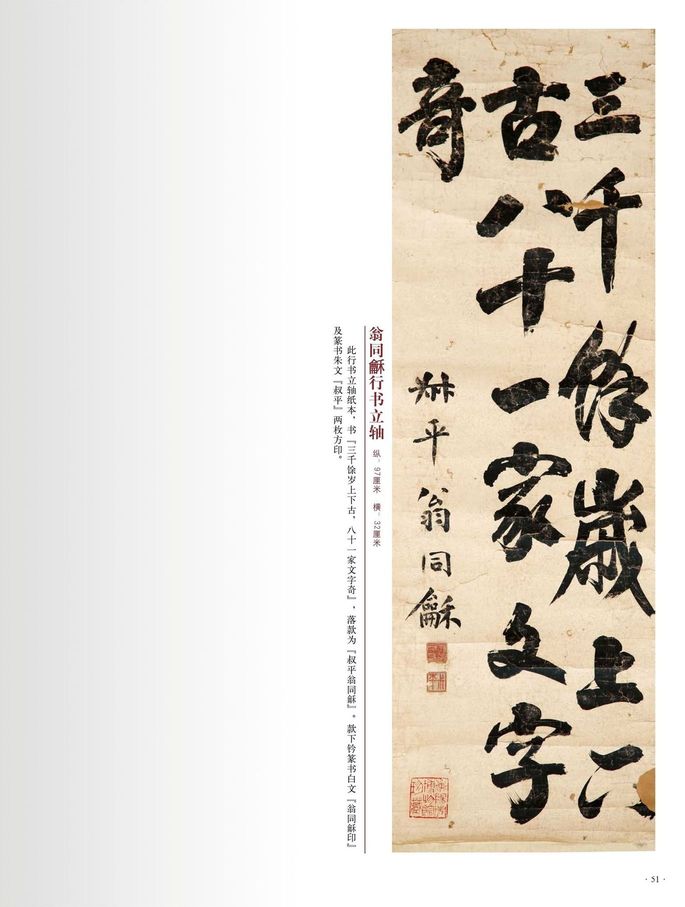 三千餘歲上下
古八十一家文字
奇
叔平翁同龢
翁同龢行书立轴 纵：97厘米 横：32厘米
此行书立轴纸本，书『三千馀岁上下古，八十一家文字奇』，落款为『叔平翁同龢』。款下钤篆书白文『翁同龢印』
及篆书朱文『叔平』两枚方印。
· 51 ·